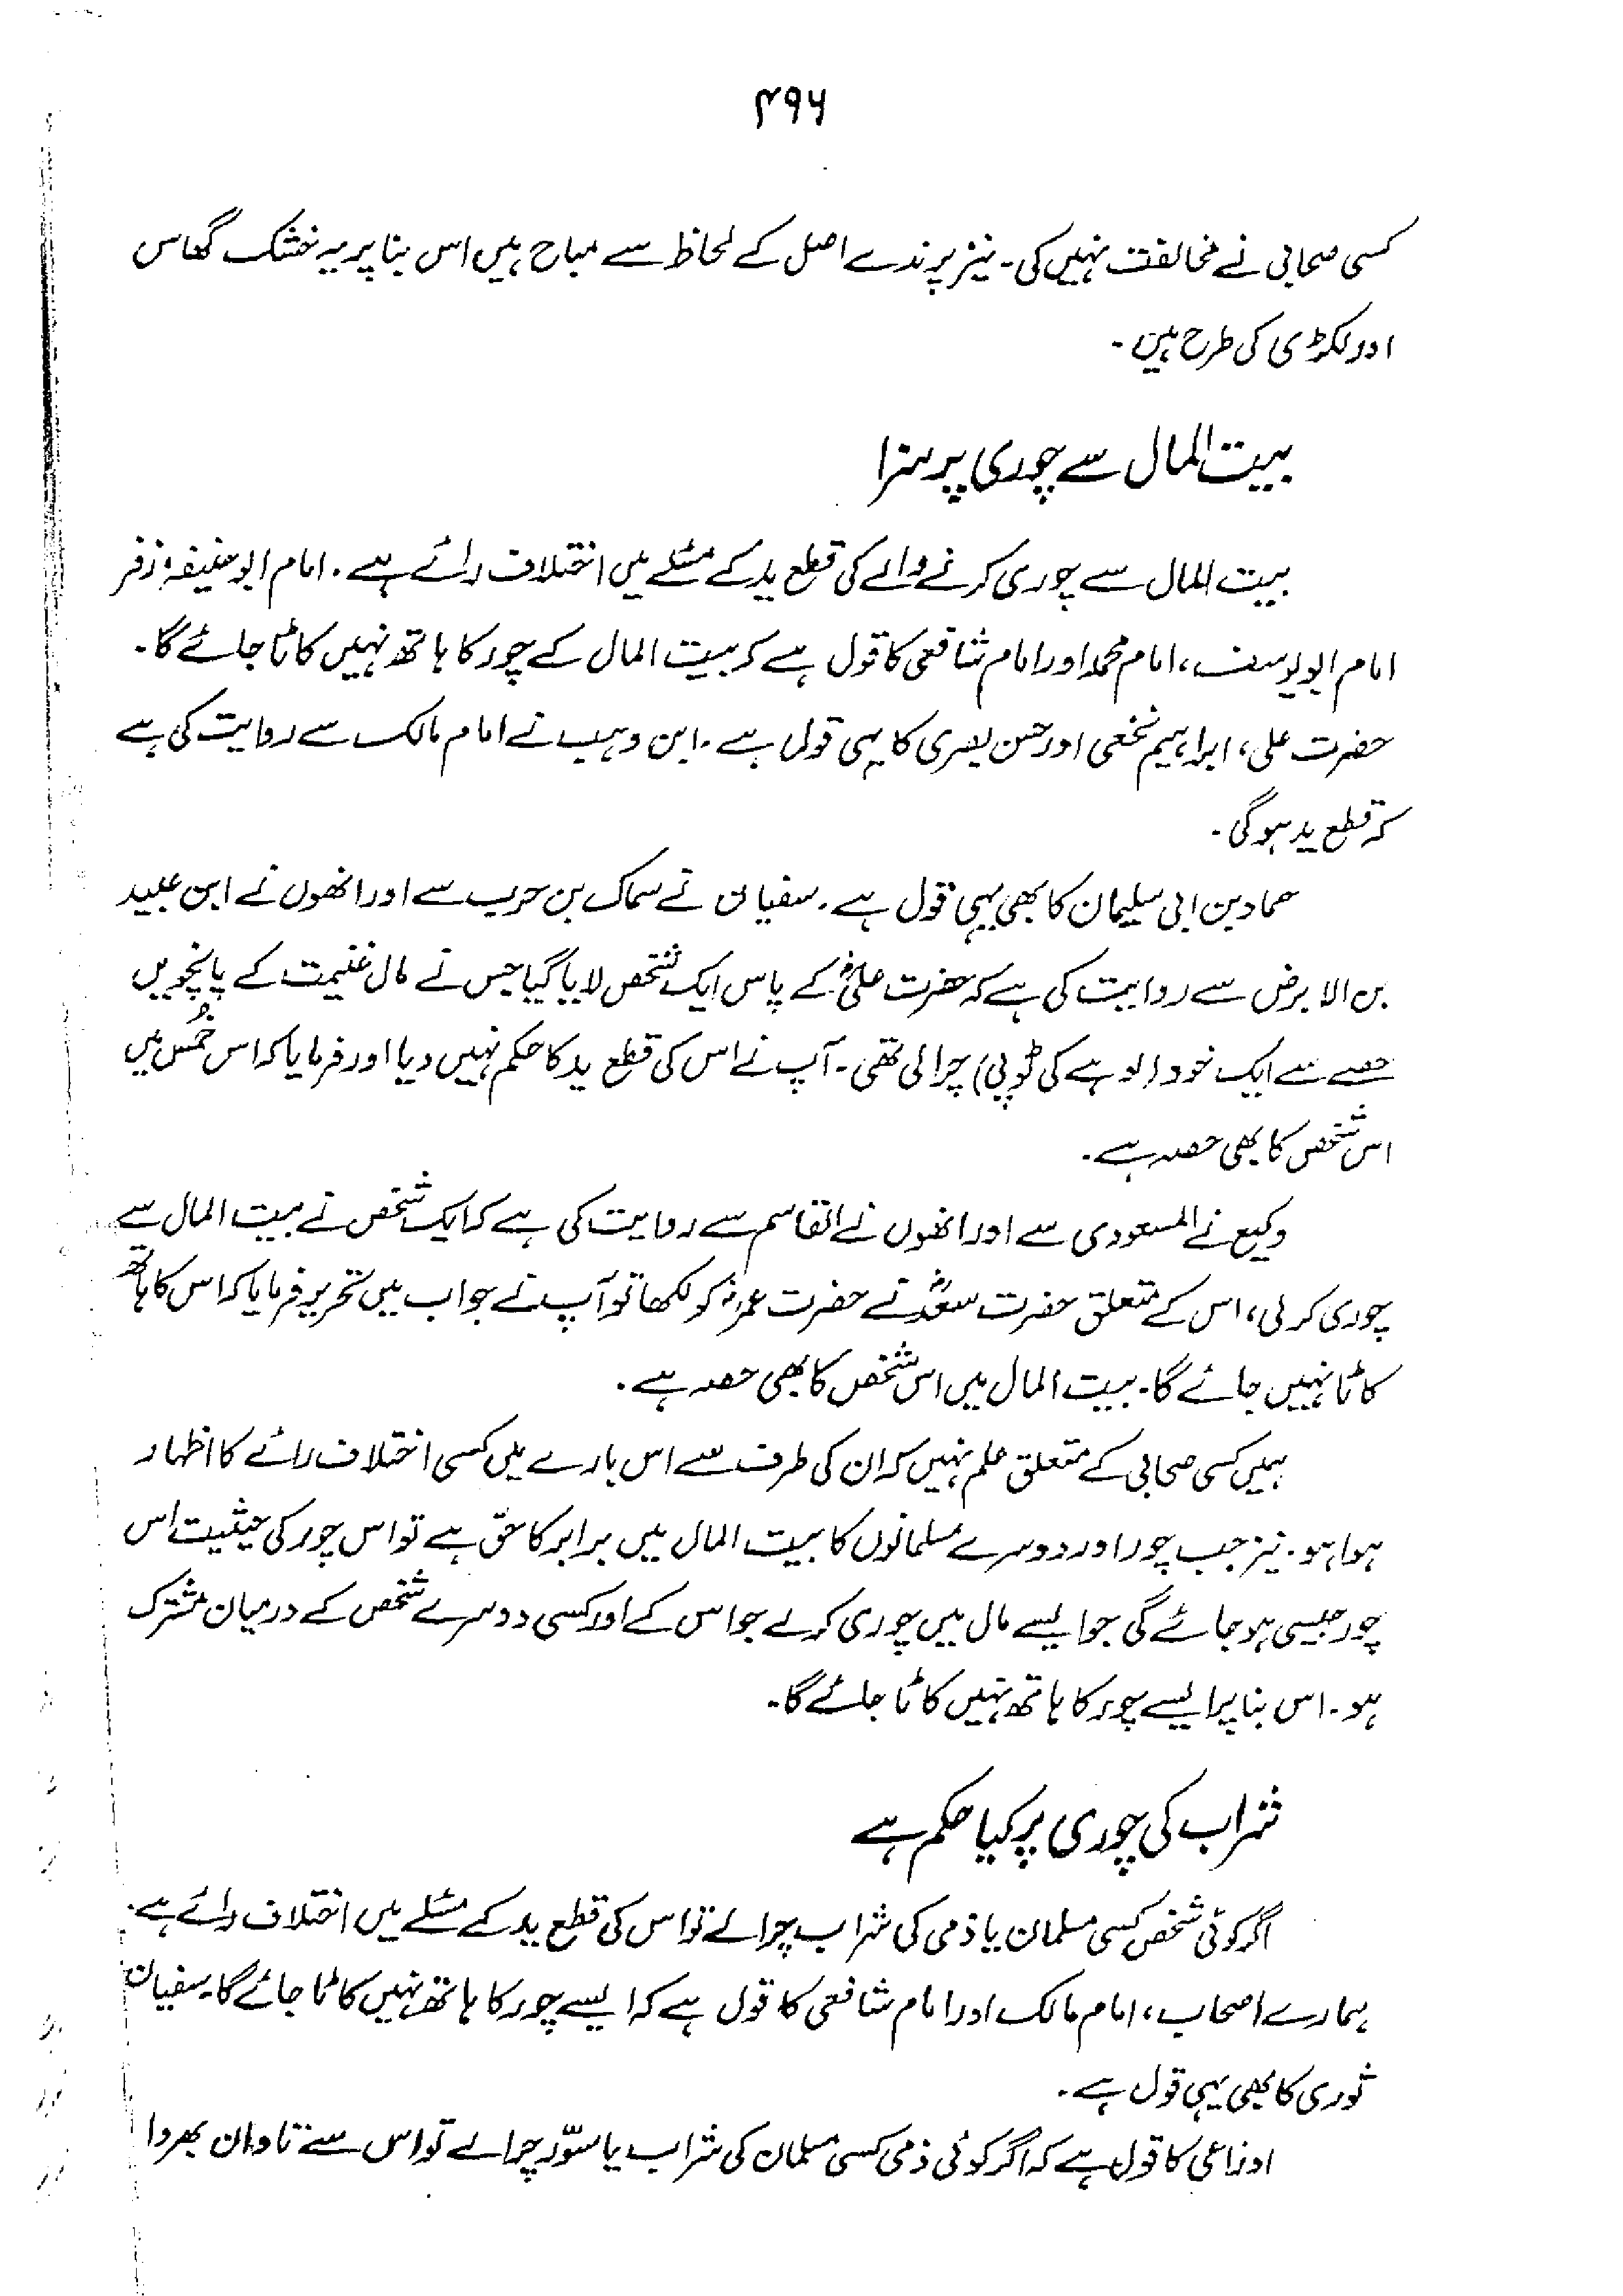 ۴۹۶
کسی صحابی نے مخالفت نہیں کی۔ نیز پرندے اصل کے لحاظ سے مباح ہیں اس بنا پر یہ خشک گھاس
اور لکڑی کی طرح ہیں۔
بیت المال سے چوری پر سزا
بیت المال سے چوری کرنے والے کی قطع ید کے مسئلے میں اختلاف رائے ہے۔ امام ابو حنیفہ، زفر
امام ابو یوسف، امام محمد اور امام شافعی کا قول ہے کہ بیت المال کے چور کا ہاتھ نہیں کاٹا جائے گا۔
حضرت علی، ابراہیم نخعی اور حسن بصری کا یہی قول ہے۔ ابن وہب نے امام مالک سے روایت کی ہے
کہ قطع ید ہوگی۔
حماد بن ابی سلیمان کا بھی یہی قول ہے۔ سفیان نے سماک بن حرب سے اور انھوں نے ابن عبید
بن الابرض سے روایت کی ہے کہ حضرت علیؓ کے پاس ایک شخص لایا گیا جس نے مال غنیمت کے پانچویں
حصے سے ایک خود (لوہے کی ٹوپی) چرالی تھی۔ آپ نے اس کی قطع ید کا حکم نہیں دیا اور فرمایا کہ اس خُمس میں
اس شخص کا بھی حصہ ہے۔
وکیع نے المسعودی سے اور انھوں نے القاسم سے روایت کی ہے کہ ایک شخص نے بیت المال سے
چوری کرلی، اس کے متعلق حضرت سعدؓ نے حضرت عمرؓ کو لکھا تو آپ نے جواب میں تحریر فرمایا کہ اس کا ہاتھ
کاٹا نہیں جائے گا۔ بیت المال میں اس شخص کا بھی حصہ ہے۔
ہمیں کسی صحابی کے متعلق علم نہیں کہ ان کی طرف سے اس بارے میں کسی اختلاف رائے کا اظہار
ہوا ہو۔ نیز جب چور اور دوسرے مسلمانوں کا بیت المال میں برابر کا حق ہے تو اس چور کی حیثیت اس
چور جیسی ہو جائے گی جو ایسے مال میں چوری کرے جو اس کے اور کسی دوسرے شخص کے درمیان مشترک
ہو۔ اس بنا پر ایسے چور کا ہاتھ نہیں کاٹا جائے گا۔
شراب کی چوری پر کیا حکم ہے
اگر کوئی شخص کسی مسلمان یا ذمی کی شراب چرالے تو اس کی قطع ید کے مسئلے میں اختلاف رائے ہے۔
ہمارے اصحاب، امام مالک اور امام شافعی کا قول ہے کہ ایسے چور کا ہاتھ نہیں کاٹا جائے گا۔ سفیان
ثوری کا بھی یہی قول ہے۔
اوزاعی کا قول ہے کہ اگر کوئی ذمی کسی مسلمان کی شراب یا سوّر چرالے تو اس سے تاوان بھروا